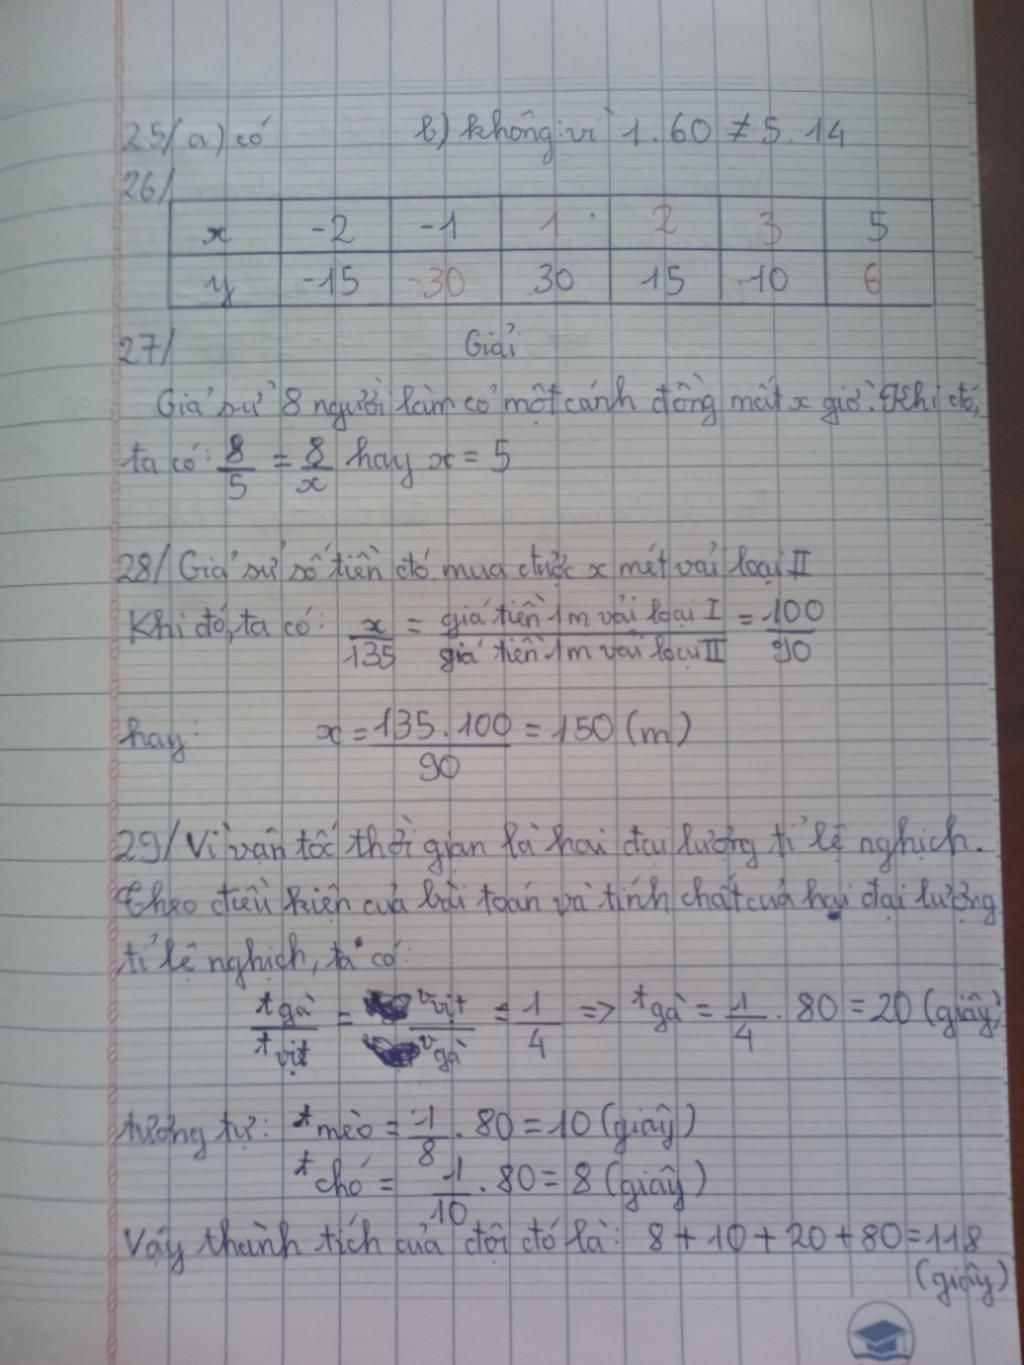 25/ a) có b) không vì 1.60 ≠ 5.14
26/
x -2 -1 1 2 3 5
y -15 -30 30 15 10 6
27/ Giải
Giả sử 8 người làm cỏ một cánh đồng mất x giờ. Khi đó,
ta có: 8/5 = 8/x hay x = 5
28/ Giả sử số tiền đó mua được x mét vải loại II
Khi đó, ta có: x/135 = giá tiền 1m vải loại I/giá tiền 1m vải loại II = 100/90
hay: x = 135.100/90 = 150 (m)
29/ Vì vận tốc thời gian là hai đại lượng tỉ lệ nghịch.
Theo điều kiện của bài toán và tính chất của hai đại lượng
tỉ lệ nghịch, ta có:
t gà/t vịt = v vịt/v gà = 1/4 => t gà = 1/4 . 80 = 20 (giây)
tương tự: t mèo = 1/8 . 80 = 10 (giây)
t chó = 1/10 . 80 = 8 (giây)
Vậy thành tích của đội đó là: 8 + 10 + 20 + 80 = 118
(giây)